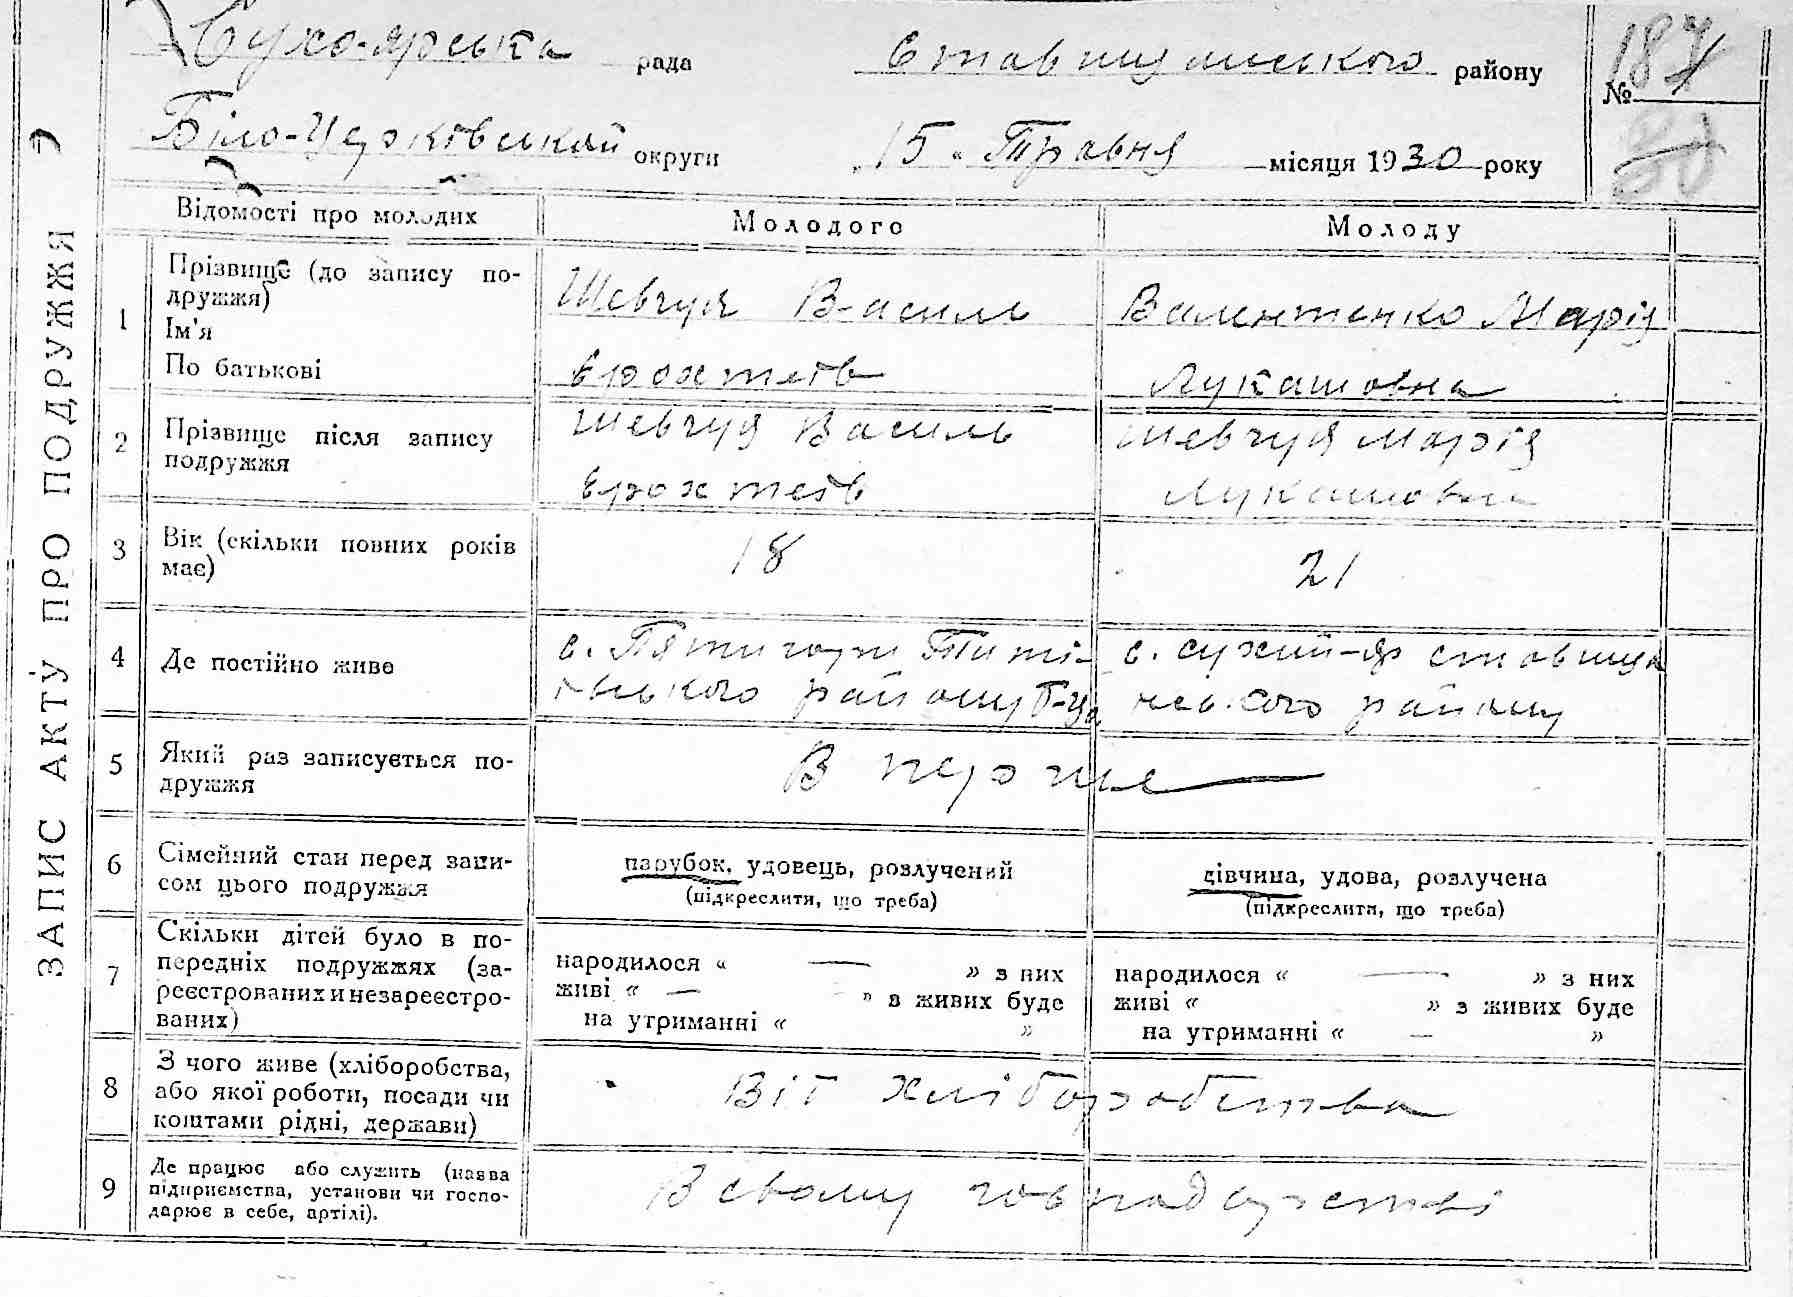 Сухо-ярська рада Ставищанського району № 187
Біло-Церківської округи „ 15 „ Травня місяця 1930 року
ЗАПИС АКТУ ПРО ПОДРУЖЖЯ
Відомості про молодих Молодого Молоду
1 Прізвище (до запису по-
дружжя)
Ім'я
По батькові
Шевчук Василь
Валентенко Марія
Лукашовна
2 Прізвище після запису
подружжя
Шевчук Василь
Шевчук Марія
Лукашовна
3 Вік (скільки повних років
має)
18 21
4 Де постійно живе
с. Пятигори Тити-
вського району Б-Цер
с. Сухий-яр Ставища
нського району
5 Який раз записується по-
дружжя
В перше
6 Сімейний стан перед запи-
сом цього подружжя
парубок, удовець, розлучений
(підкреслити, що треба)
дівчина, удова, розлучена
(підкреслити, що треба)
7 Скільки дітей було в по-
передніх подружжях (за-
реєстрованих и незареєстро-
ваних)
народилося « — » з них
живі « — » з живих буде
на утриманні « »
народилося « — » з них
живі « » з живих буде
на утриманні « — »
8 З чого живе (хліборобства,
або якої роботи, посади чи
коштами рідні, держави)
Віт хліборобства
9 Де працює або служить (назва
підприємства, установи чи госпо-
дарює в себе, артілі).
В свому